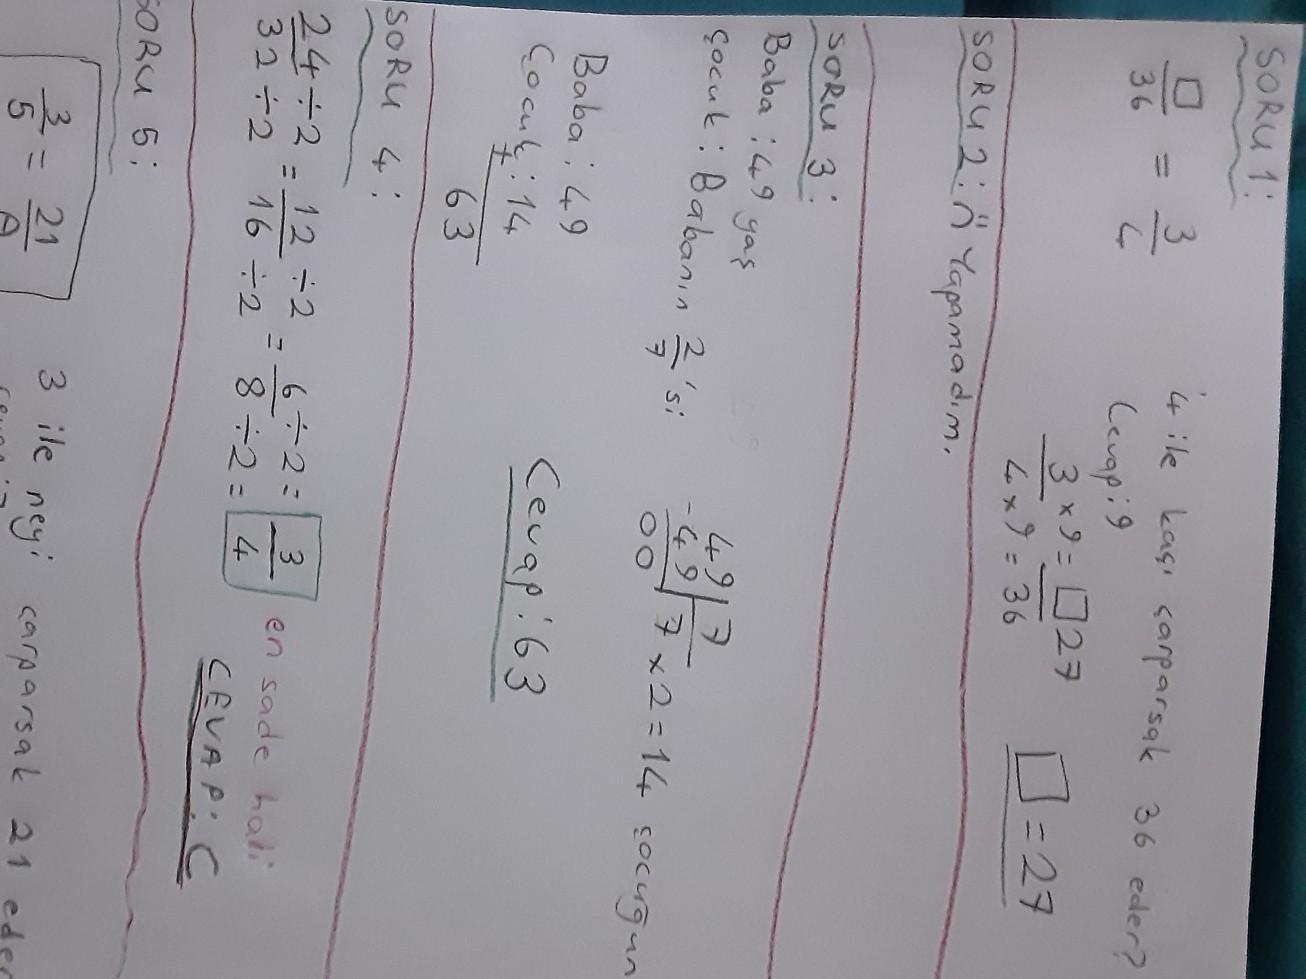 SORU 1:
□/36 = 3/4
4 ile kaçı çarparsak 36 eder?
Cevap: 9
3 x 9 = □ 27
4 x 9 = 36
□ = 27
SORU 2: Yapamadım.
SORU 3:
Baba: 49 yaş
çocuk: Babanın 2/7'si
49 | 7
- 49
00
7 x 2 = 14 çocuğun
Baba: 49
Çocuk: 14
+
63
Cevap: 63
SORU 4:
24 ÷ 2 = 12 ÷ 2 = 6 ÷ 2 = 3
32 ÷ 2 16 ÷ 2 8 ÷ 2 = 4
en sade hali
CEVAP: C
SORU 5:
3/5 = 21/A
3 ile neyi çarparsak 21 eder